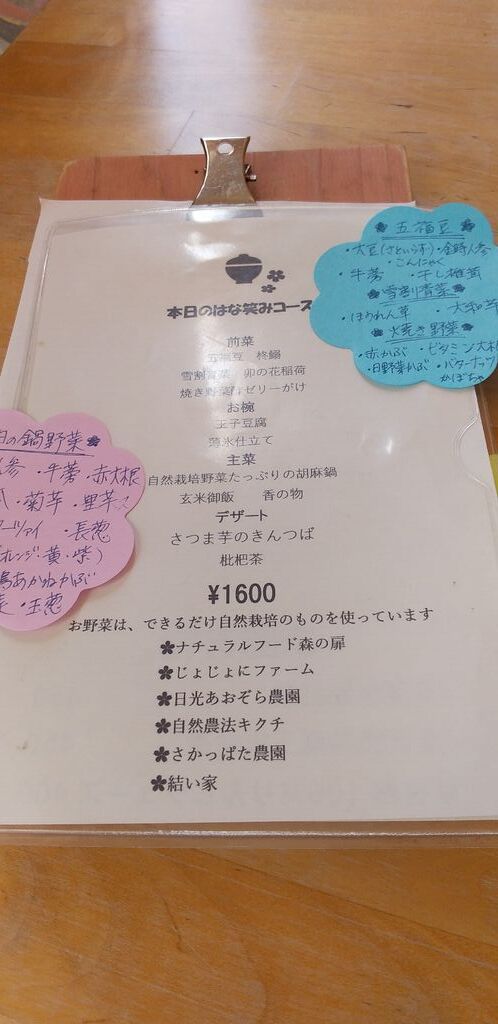 本日のはな笑みコース
前菜
五福豆　柊鰯
雪割青菜　卯の花稲荷
焼き野菜　ゼリーがけ
お椀
玉子豆腐
薄氷仕立て
主菜
自然栽培野菜たっぷりの胡麻鍋
玄米御飯　香の物
デザート
さつま芋のきんつば
枇杷茶
¥1600
お野菜は、できるだけ自然栽培のものを使っています
✽ナチュラルフード森の扉
✽じょじょにファーム
✽日光あおぞら農園
✽自然農法キクチ
✽さかっぱた農園
✽結い家
五福豆
・大豆(さといらず)・金時人参
・こんにゃく
・牛蒡　・干し椎茸
雪割青菜
・ほうれん草　・大和芋
焼き野菜
・赤かぶ　・ビタミン大根
・日野菜かぶ　・バターナッツ
かぼちゃ
日の鍋野菜
人参・牛蒡・赤大根
・菊芋・里芋
ターツァイ　・長葱
(オレンジ・黄・紫)
あかねかぶ
・玉葱